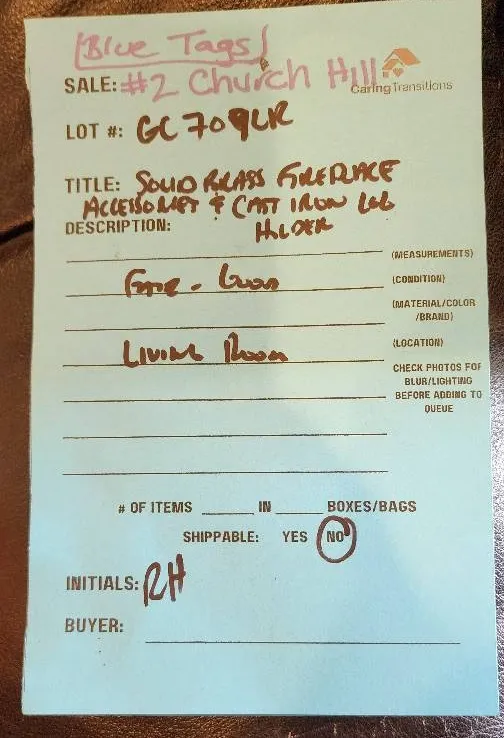 [Blue Tags]
SALE: #2 Church Hill
Caring Transitions
LOT #: GC709LR
TITLE: SOLID BRASS FIREPLACE
ACCESSORIES & CAST IRON LOG
HOLDER
DESCRIPTION:
(MEASUREMENTS)
FAIR - GOOD (CONDITION)
(MATERIAL/COLOR
/BRAND)
LIVING ROOM (LOCATION)
CHECK PHOTOS FOR
BLUR/LIGHTING
BEFORE ADDING TO
QUEUE
# OF ITEMS ______ IN ______ BOXES/BAGS
SHIPPABLE: YES NO
INITIALS: RH
BUYER: